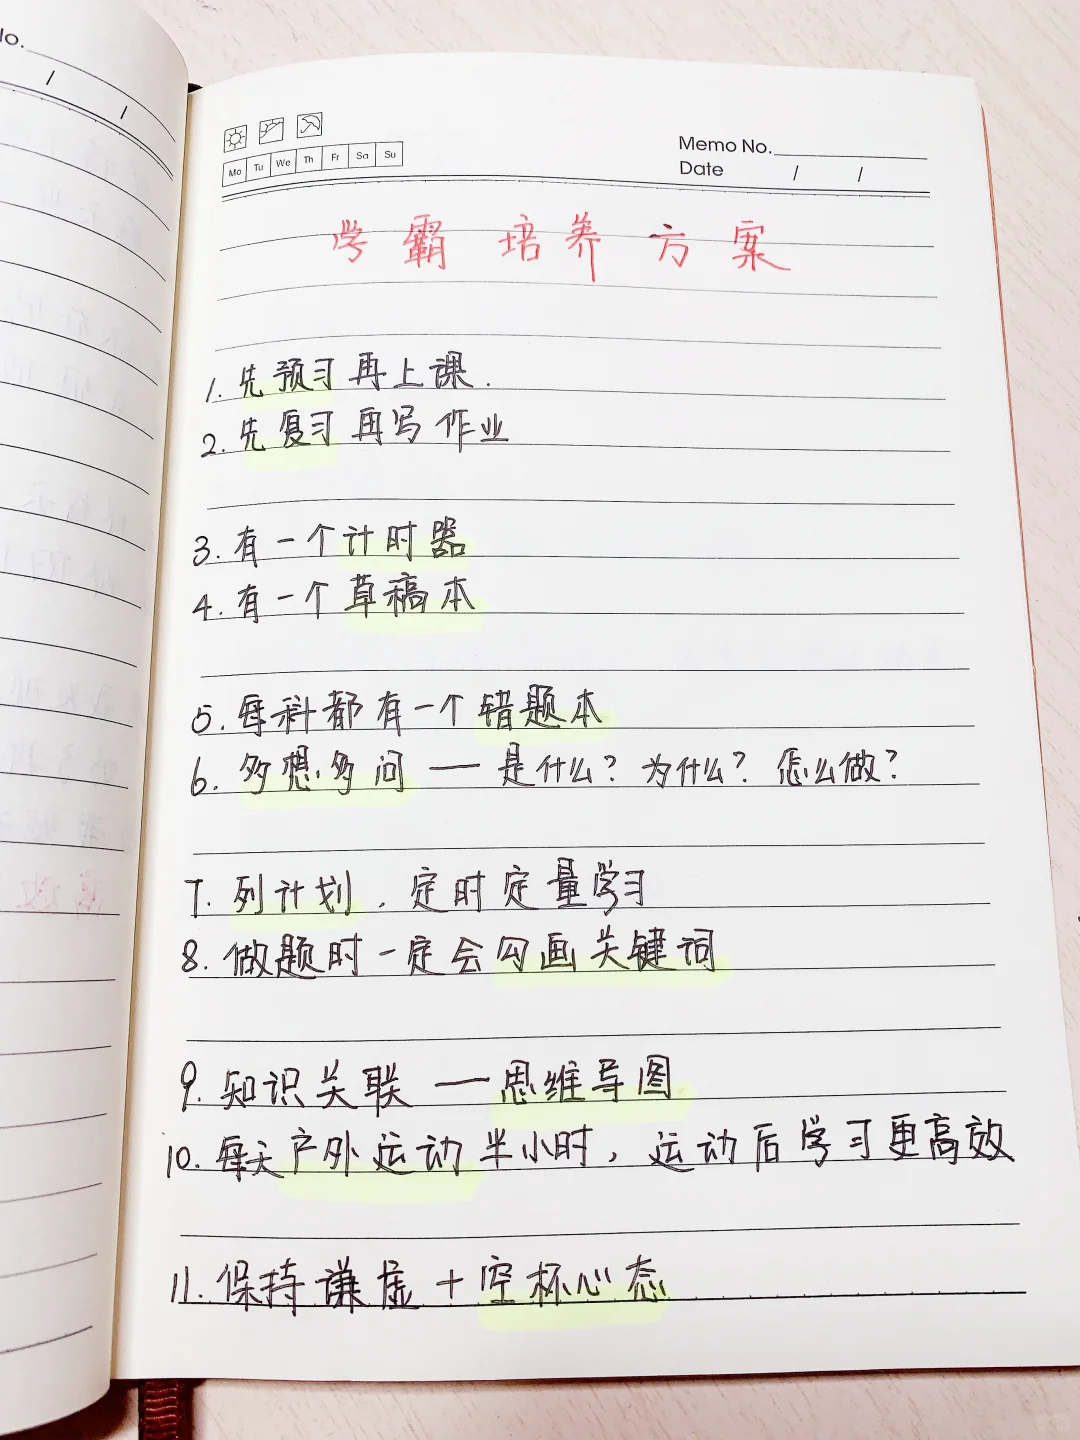 No.
/ /
Mo Tu We Th Fr Sa Su
Memo No.
Date / /
学霸 培养 方案
1. 先预习再上课.
2. 先复习再写作业
3. 有一个计时器
4. 有一个草稿本
5. 每科都有一个错题本
6. 多想多问 — 是什么? 为什么? 怎么做?
7. 列计划, 定时定量学习
8. 做题时一定会勾画关键词
9. 知识关联 — 思维导图
10. 每天户外运动半小时, 运动后学习更高效
11. 保持谦虚 + 空杯心态